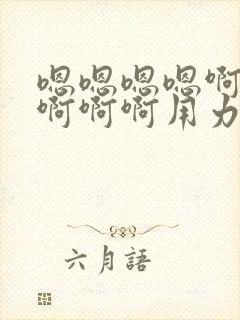 嗯嗯嗯嗯啊
啊啊啊用力
六月語